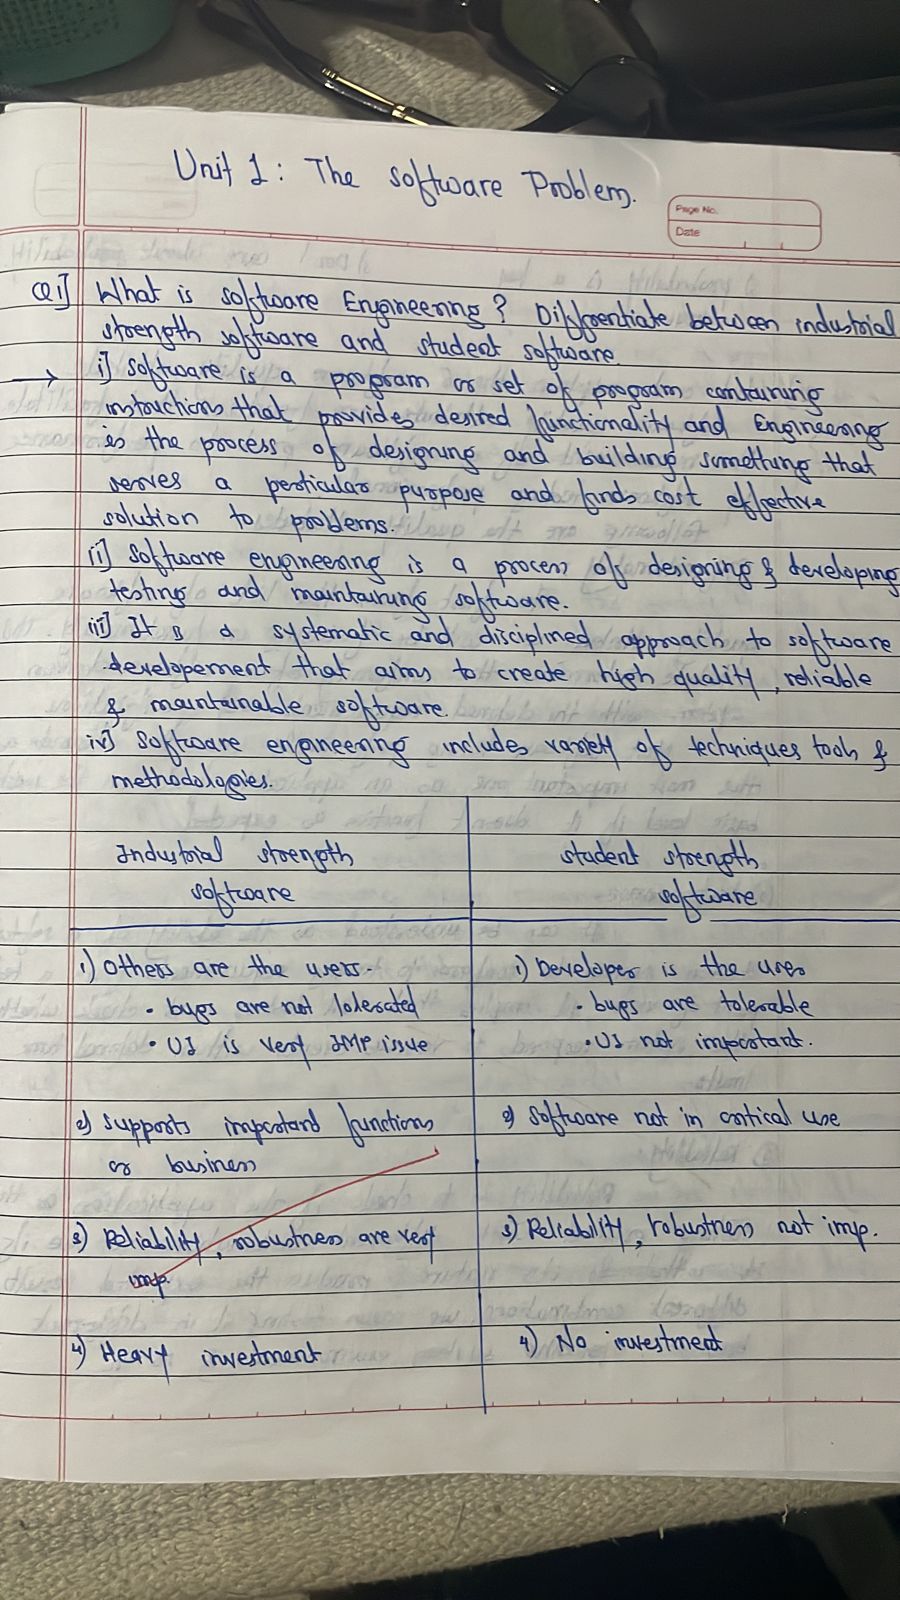 Unit 1: The software Problem.
Page No.
Date
Q1] What is software Engineering? Differentiate between industrial
strength software and student software
→ i] software is a program or set of program containing
instructions that provides desired functionality and Engineering
is the process of designing and building something that
serves a perticular purpose and finds cost effective
solution to problems.
ii] software engineering is a process of designing & developing
testing and maintaining software.
iii] It is a systematic and disciplined approach to software
developement that aims to create high quality, reliable
& maintainable software.
iv] software engineering includes variety of techniques tools &
methodologies.
Industrial strength software
1) Others are the users.
• bugs are not tolerated
• UI is very IMP issue
2) supports important functions
or business
3) Reliability, robustness are very
imp.
4) Heavy investment
student strength software
1) Developer is the user
• bugs are tolerable
• UI not important.
2) software not in critical use
3) Reliability, robustness not imp.
4) No investment